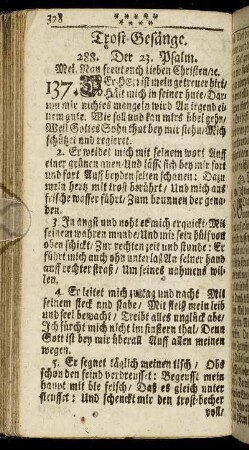 378
Trost-Gesänge.
288. Der 23. Psalm.
Mel. Nun freut euch lieben Christen/ꝛc.
137. DEr HErr ist mein getreuer hirt/
Hält mich in seiner hute/ Dar
inn mir nichtes mangeln wird An irgend ei
nem gute. Wie soll und kan mirs übel gehn/
Weil Gottes Sohn thut bey mir stehn/ Mich
schützt und regieret.
2. Er weidet mich mit seinem wort Auff
einer grünen auen/ Und läßt sich bey mir fort
und fort Auff beyden seiten schauen: Dazu
mein hertz mit trost berührt/ Und mich aus
frische wasser führt/ Zum brunnen der gna-
den.
3. In angst und noht er mich erquickt/ Mit
seinem wahren munde/ Und mir sein hülf von
oben schickt/ Zur rechten zeit und stunde: Er
führt mich auch ohn unterlaß An seiner hand
auff rechter straß/ Um seines nahmens wil-
len.
4. Er leitet mich zu tag und nacht Mit
seinem steck und stabe/ Mit fleiß mein leib
und seel bewacht/ Treibt alles unglück abe/
Ich fürcht mich nicht im finstern thal/ Denn
Gott ist bey mir überall Auff allen meinen
wegen.
5. Er segnet täglich meinen tisch/ Obs
schon den feind verdreusset: Begeußt mein
haupt mit öle frisch/ Daß es gleich unter
fleusset: Und schenckt mir den trost-becher
voll/